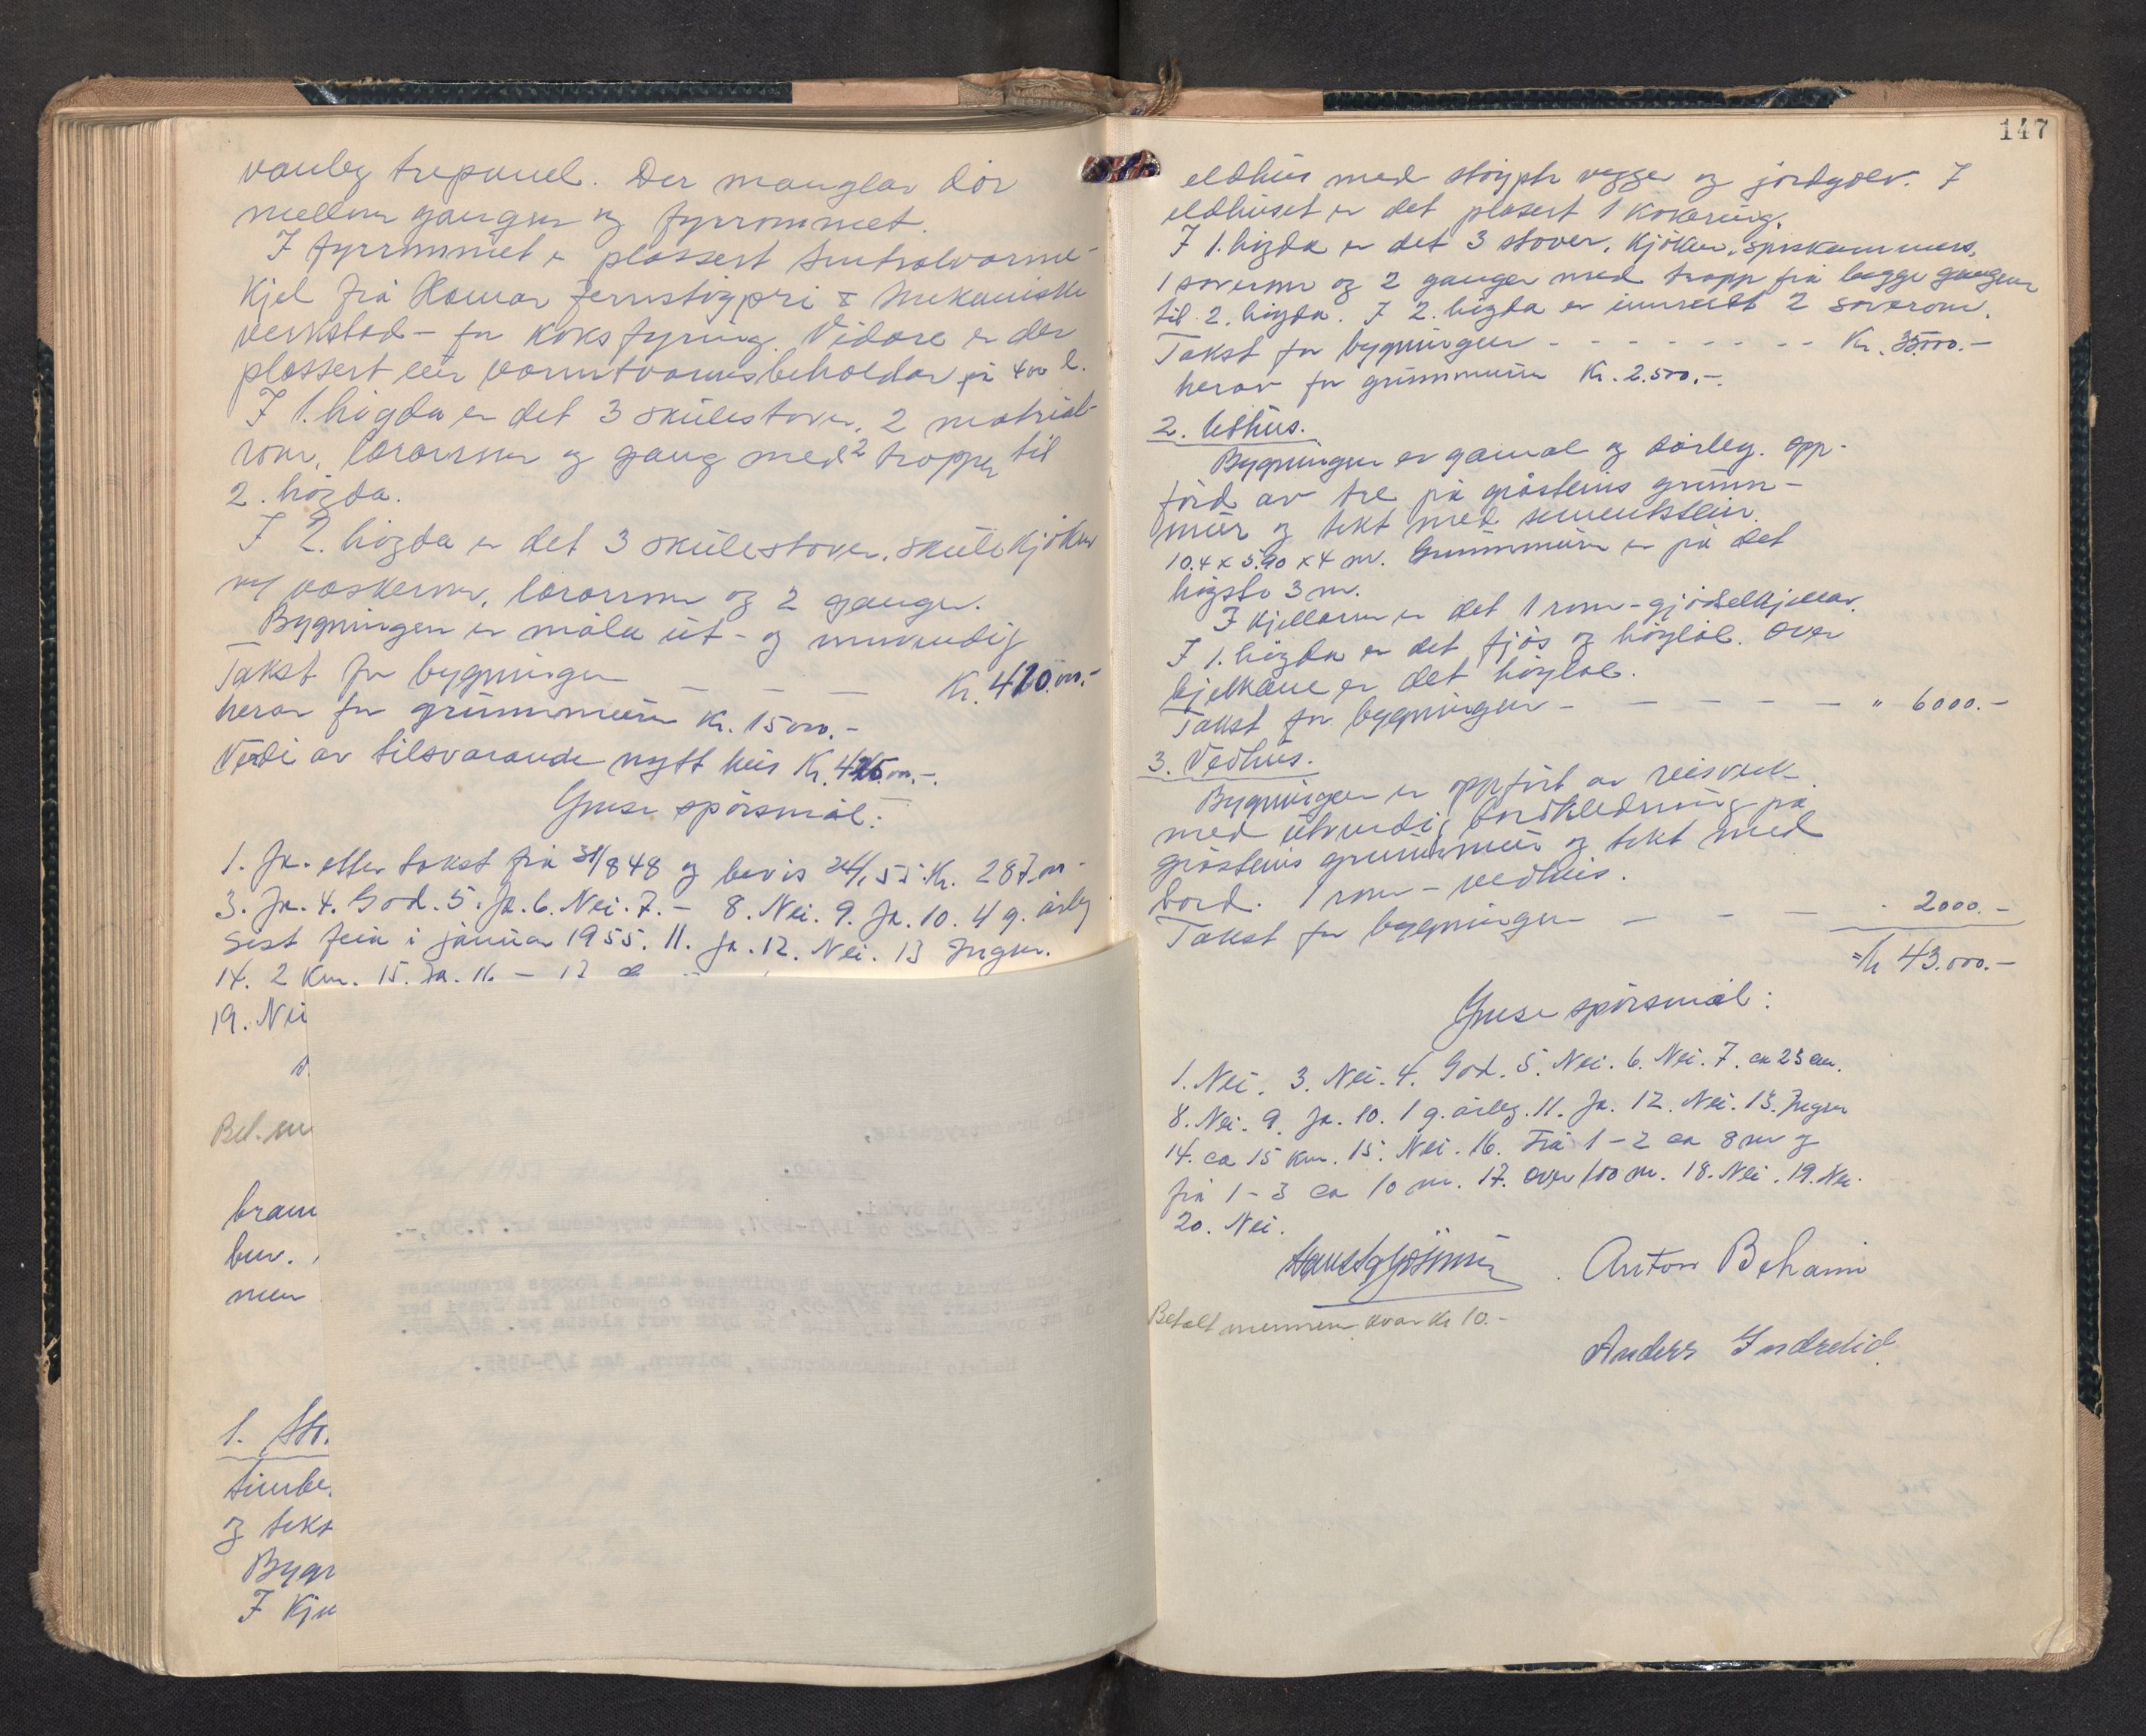 vanleg trepanel. Der manglar dör
mellom gangen og fyrrommet.
I fyrrommet er plassert sentralvarme-
kjel frå Hamar jernstöypri & mekaniske
verkstad – for koksfyring. Vidare er der
plassert ein varmtvannsbeholdar på 400 l.
I 1. högda er det 3 skúlestover, 2 matrial-
rom, lærarrom og gang med 2 trapper til
2. högda.
I 2. högda er det 3 skúlestover, skúlekjöken
m/ vaskerom, lærarrom og 2 ganger.
Bygningen er måla út- og innvendig
Takst for bygningen – – – Kr. 420.000.-
herav for grúnnmúren Kr. 15000.-
Verdi av tilsvarande nytt hús Kr. 425.000.-
Ymse spörsmål:
1. Ja. etter takst frå 31/8 48 og bevis 24/1 55: Kr. 287.000
3. Ja. 4. God. 5. Ja. 6. Nei. 7. – 8. Nei. 9. Ja. 10. 4 g. årleg
Sist feia i janúar 1955. 11. Ja. 12. Nei. 13 Ingen.
14. 2 km. 15. Ja. 16 – 17
19. Nei
Bet.
bran
bur.
men
1. Sto.
timbe.
og tekt
Bygn
I Kje
147
eldhús med stöypte vegger og jordgolv. I
eldhúset er det plasert 1 kokaring.
I 1. högda er det 3 stover, kjöken, spiskammers,
1 soverom og 2 ganger med trapp frå begge gangene
til 2. högda. I 2. högda er innreidt 2 soverom.
Takst for bygningen - - - - - - - Kr. 35000.-
herav for grúnnmúren Kr. 2.500.-
2. Uthús.
Bygningen er gamal og dårleg. Opp-
förd av tre på gråsteins grúnn-
múr og tekt med sementstein.
10.4 x 5.90 x 4 m. Grúnnmúren er på det
högste 3 m.
I kjellaren er det 1 rom – gjödselkjellar.
I 1. högda er det fjös og höylöe. Over
bjelkane er det höylöe.
Takst for bygningen – – – – – " 6000.-
3. Vedhús.
Bygningen er oppfört av reisverk
med útvendig bordkledning på
gråsteins grúnnmúr og tekt med
bord. 1 rom – vedhús.
Takst for bygningen – – – 2000.-
= Kr 43.000.-
Ymse spörsmål:
1. Nei. 3. Nei. 4. God. 5. Nei. 6. Nei. 7. ca 25 cm.
8. Nei. 9. Ja. 10. 1 g. årleg. 11. Ja. 12. Nei. 13. Ingen
14. ca 15 km. 15. Nei. 16. Frå 1 – 2 ca 8 m og
frå 1 – 3 ca 10 m. 17. over 100 m. 18. Nei. 19. Nei.
20. Nei.
Anton Behami
Betalt mennene kvar kr 10.-
Anders Indrelid